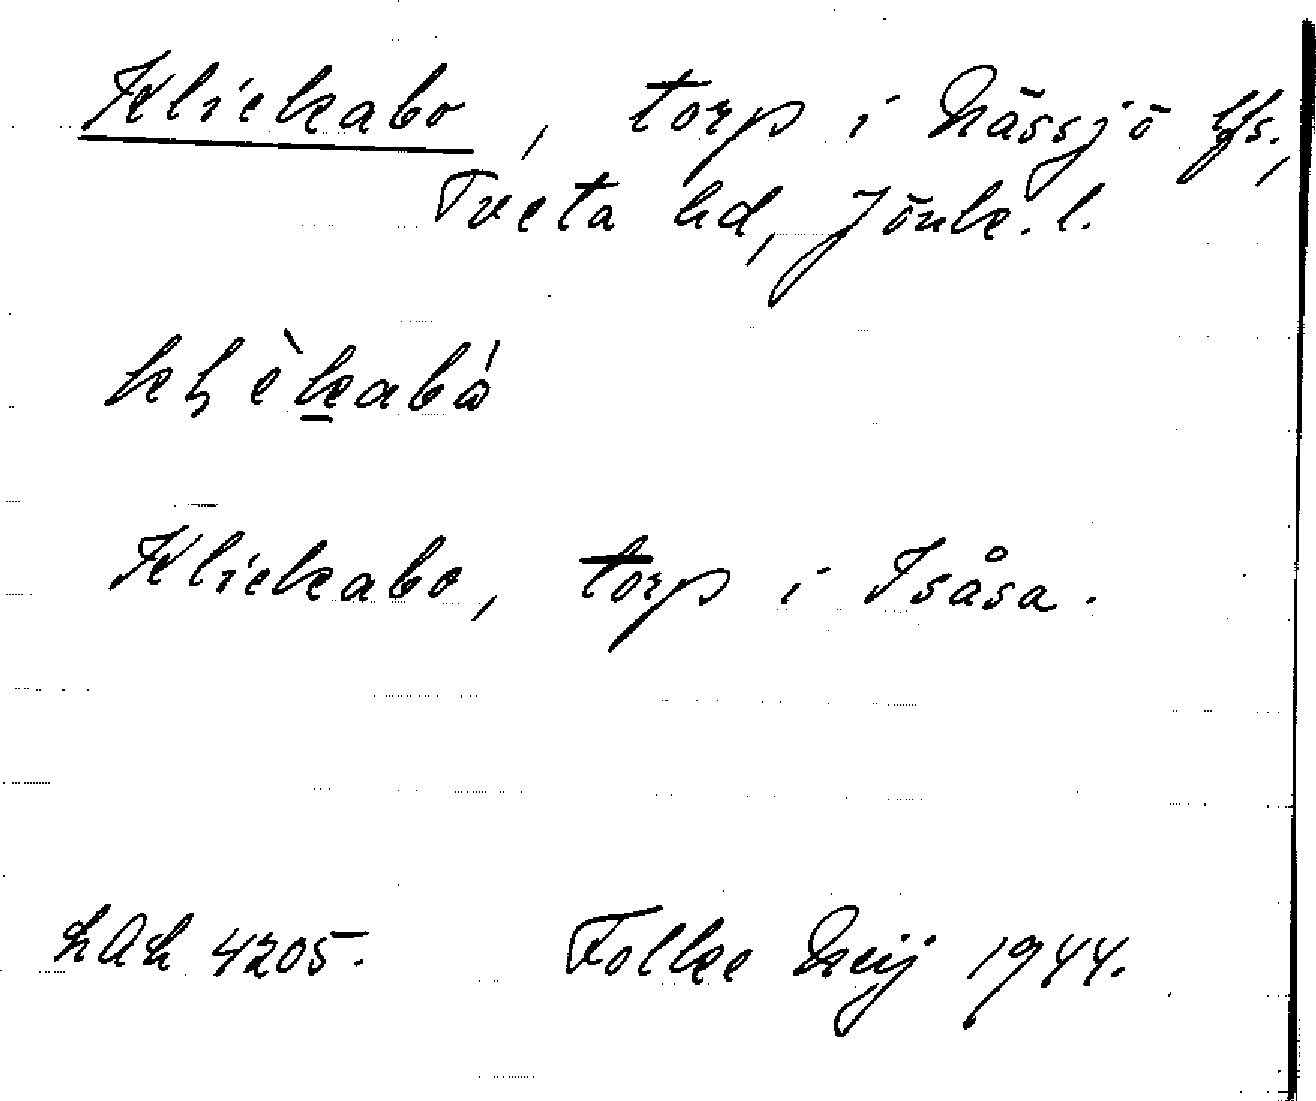 Klickabo, torp i Nässjö lfs.,
Tveta hd, Jönk. l.
Klickabo, torp i Isåsa.
4205. Folke Neij 1944.